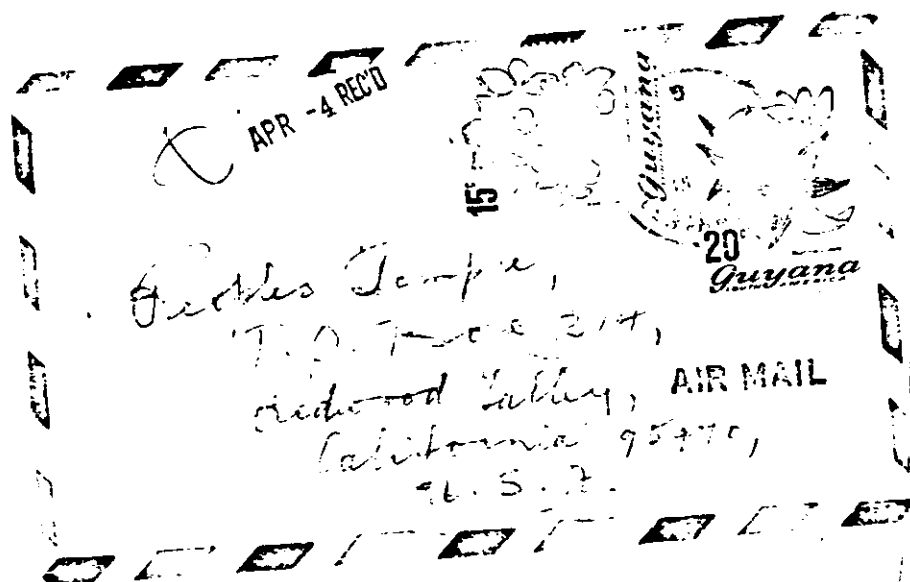 APR -4 REC'D
15¢
Guyana
20¢
Guyana
Peoples Temple,
P.O. Box 214,
Redwood Valley,
AIR MAIL
California 95470,
U.S.A.